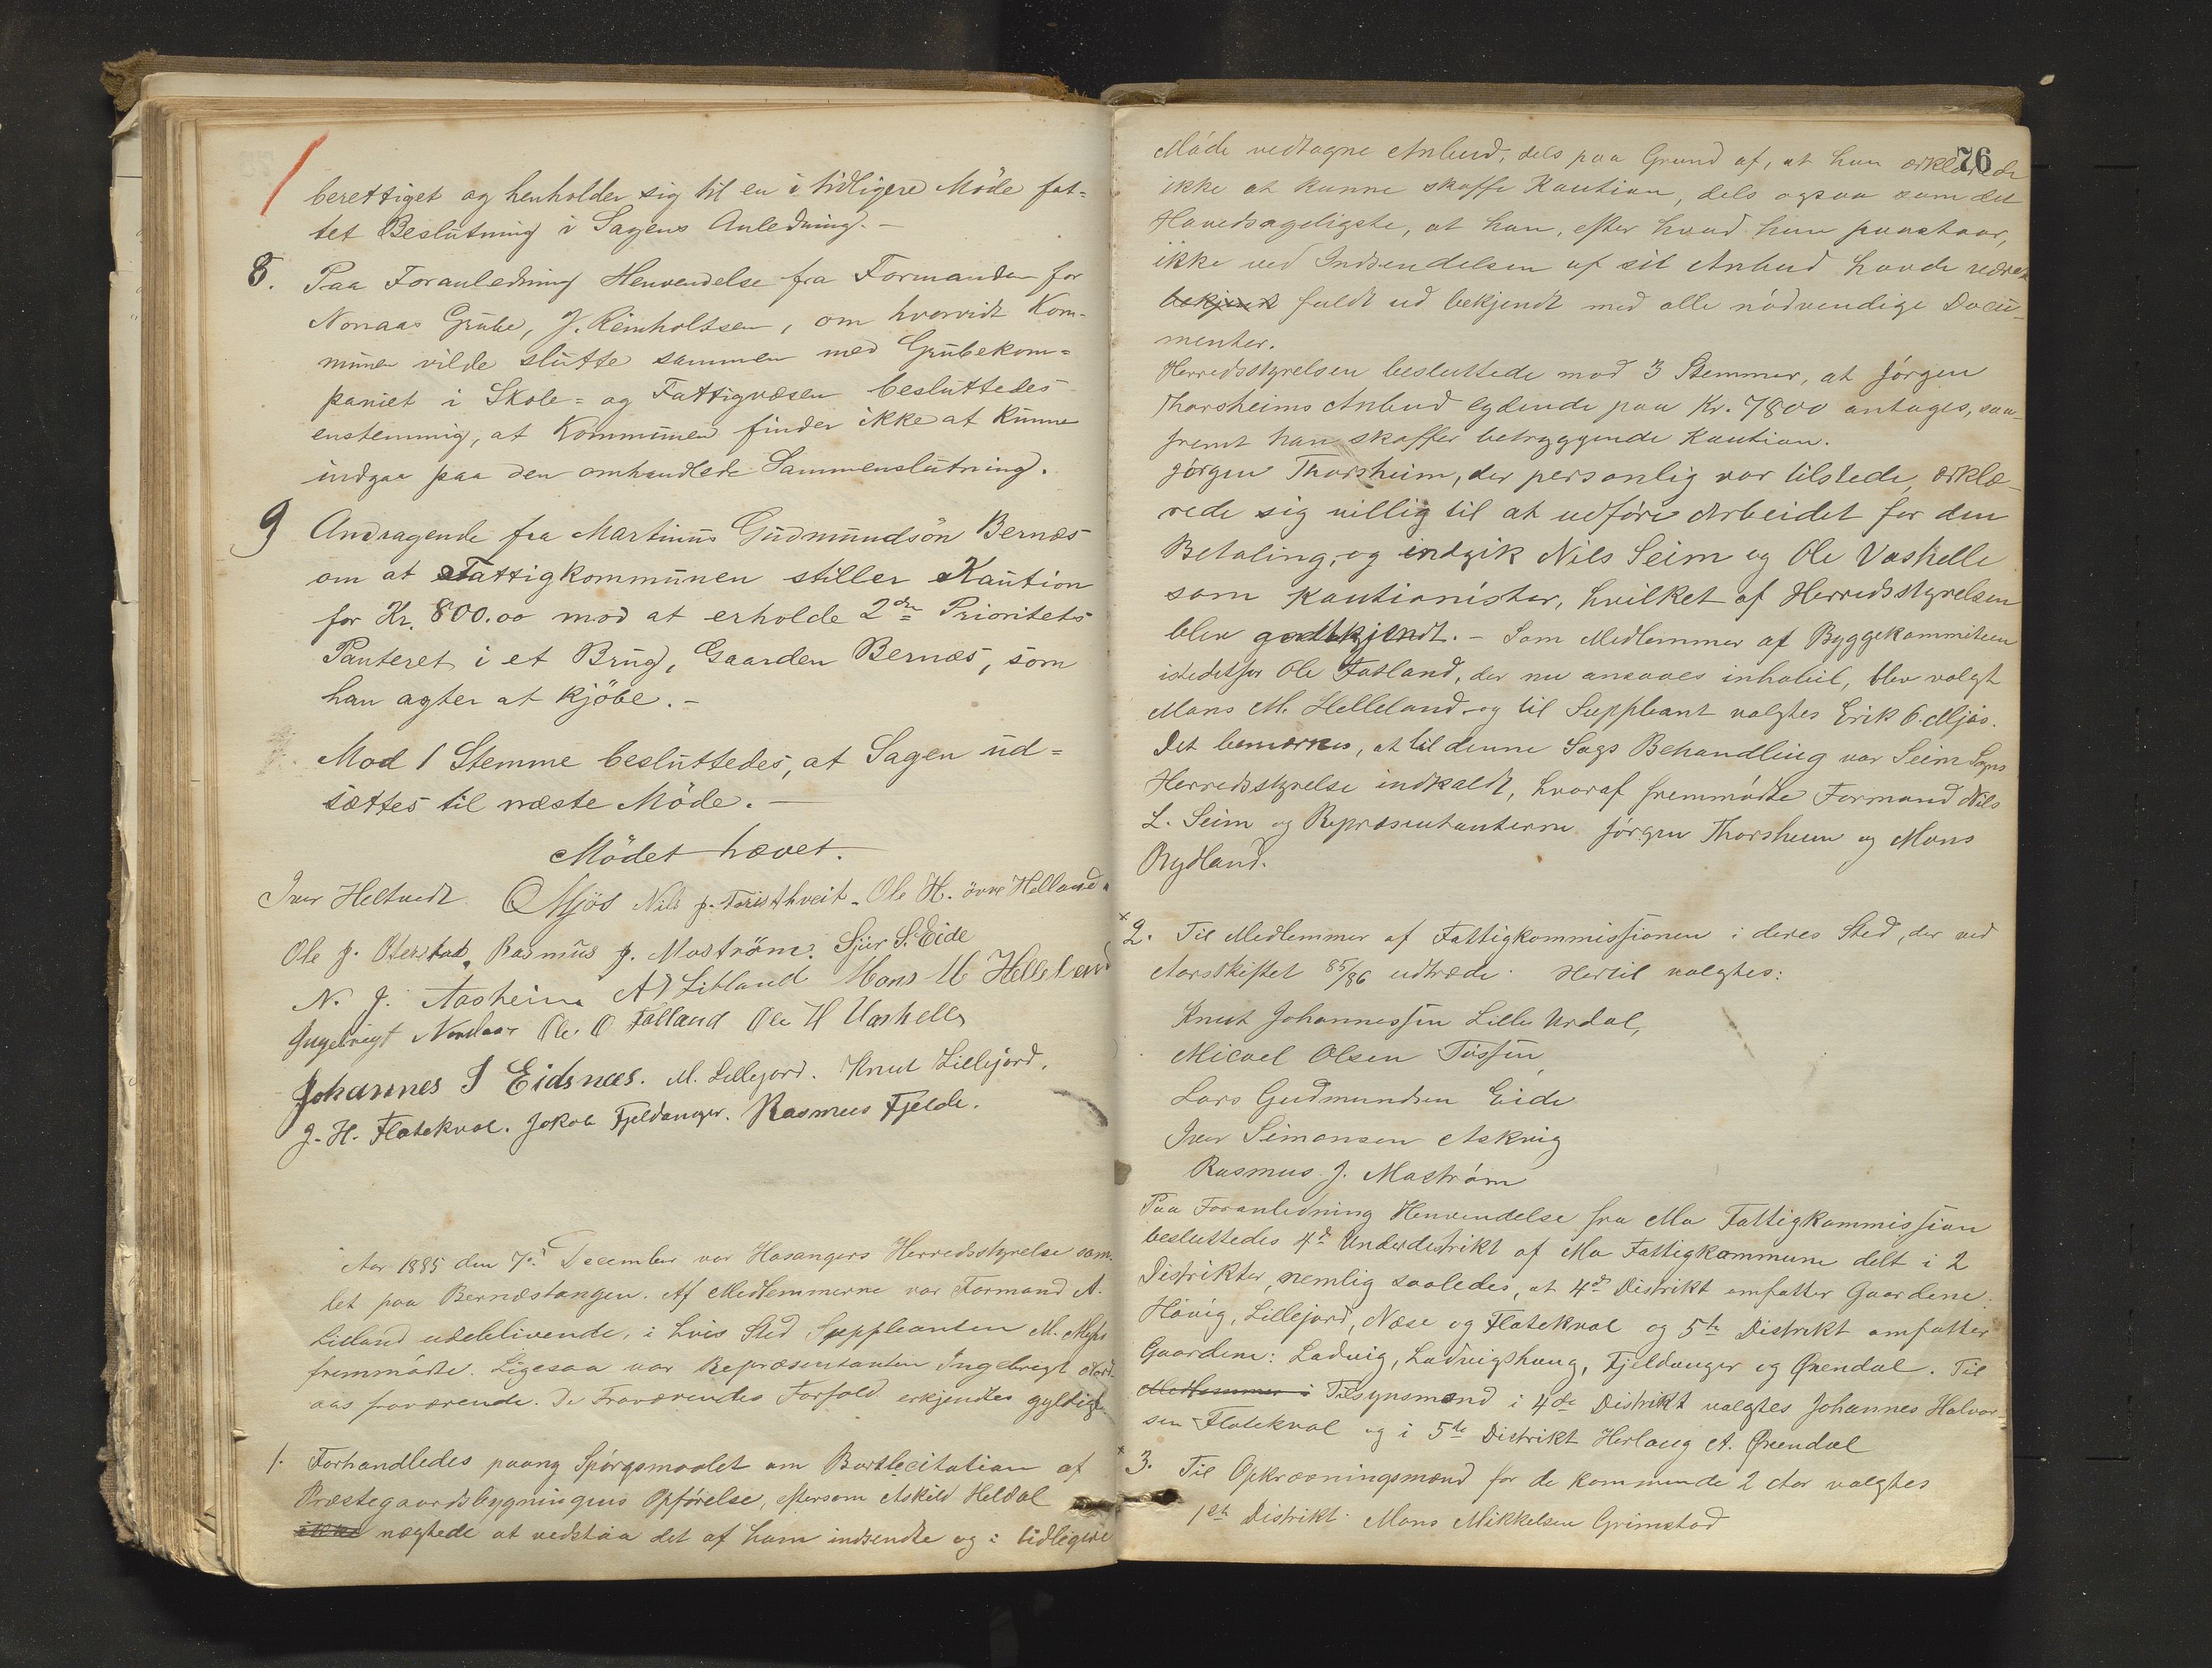 berettiget og henholder sig til en i tidligere Möde fat-
tet Beslutning i Sagens Anledning. -
8. Paa Foranledning Henvendelse fra Formanden for
Nonaas Grube, J. Reinholtsen, om hvorvidt Kom-
munen vilde slutte sammen med Grubekom=
paniet i Skole= og Fattigvæsen besluttedes
enstemmig, at Kommunen finder ikke at kunne
indgaa paa den omhandlede Sammenslutning.
9 Andragende fra Martinus Gudmundsön Bernæs
om at Fattigkommunen stiller Kaution
for Kr. 800.00 mod at erholde 2den Prioritets
Panteret i et Brug, Gaarden Bernæs, som
han agter at kjöbe. -
Mod 1 Stemme besluttedes, at Sagen ud=
sættes til næste Möde. -
Mödet hævet.
Iver Heltvedt. O Mjös Nils J. Tveit Ole H. övre Helland.
Ole J. Oterstad. Rasmus J. Moström. Sjur S. Eide
N. J. Aasheim A Litland Mons M Helleland
Ingebrigt Nordaas Ole O Fatland Ole H Vaskelle
Johannes J Eidsnæs. M. Lillejord. Knut Lillejord.
J. H. Flatekval. Jakob Fjeldanger. Rasmus Fjelde.
Aar 1885 den 7de December var Hosangers Herredsstyrelse sam-
let paa Bernæstangen. Af Medlemmerne var Formand A.
Litland udeblivende, i hvis Sted Suppleanten M. Mjøs
fremmødte. Ligesaa var Repræsentanten Ingebrigt Nord-
aas fraværende. De Fraværendes Forfald erkjendtes gyldigt
1. Forhandledes paany Spørgsmaalet om Bortlicitation af
Præstegaardsbygningens Opførelse, eftersom Askild Heldal
ikke nægtede at vedstaa det af ham indsendte og i tidligere
76
Møde vedtagne Anbud, dels paa Grund af, at han erklærede
ikke at kunne skaffe Kaution, dels ogsaa som det
Hovedsageligste, at han, efter hvad han paastaar,
ikke ved Indsendelsen af sit Anbud havde været
bekjendt fuldt ud bekjendt med alle nødvendige Docu-
menter.
Herredsstyrelsen besluttede mod 3 Stemmer, at Jørgen
Thorsheims Anbud lydende paa Kr. 7800 antages, saa-
fremt han skaffer betryggende Kaution.
Jörgen Thorsheim, der personlig var tilstede, erklæ-
rede sig villig til at udføre Arbeidet for den
Betaling, og indgik Nils Seim og Ole Vaskelle
som Kautionister, hvilket af Herredsstyrelsen
blev godtkjendt. - Som Medlemmer af Byggekommiteen
istedetfor Ole Fatland, der nu ansaaes inhabil, blev valgt
Mons M. Helleland og til Suppleant valgtes Erik O. Mjøs.
Det bemærkes, at til denne Sags Behandling var Seim Sogns
Herredsstyrelse indkaldt, hvoraf fremmødte Formand Nils
L. Seim og Repræsentanterne Jørgen Thorsheim og Mons
Rydland.
2. Til Medlemmer af Fattigkommissionen i deres Sted, der ved
Aarsskiftet 85/86 udtræde. Hertil valgtes:
Knut Johannessen Lille Urdal,
Micael Olsen Tossen,
Lars Gudmundsen Eide
Iver Simonsen Askvig
Rasmus J. Mostrøm
Paa Foranledning Henvendelse fra Mo Fattigkommission
besluttedes 4de Underdistrikt af Mo Fattigkommune delt i 2
Distrikter, nemlig saaledes, at 4de Distrikt omfatter Gaardene:
Høvig, Lillejord, Næse og Flatekval og 5te Distrikt omfatter
Gaardene: Ladvig, Ladvigshaug, Fjeldanger og Ørendal. Til
Medlemmer i Tilsynsmænd i 4de Distrikt valgtes Johannes Halvor-
sen Flatekval og i 5te Distrikt Herlaug A. Ørendal
3. Til Opkrævningsmænd for de kommende 2 Aar valgtes
1ste Distrikt: Mons Mikkelsen Grimstad